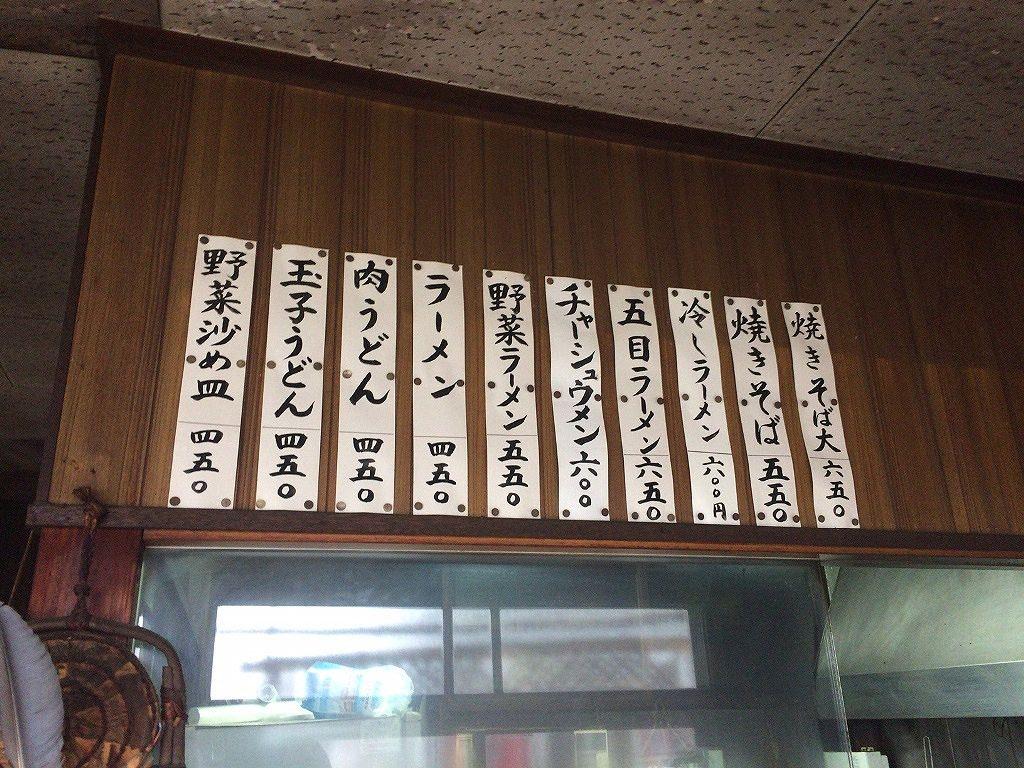 焼きそば大 六五〇
焼きそば 五五〇
冷しラーメン 六〇〇円
五目ラーメン 六五〇
チャーシュウメン 六〇〇
野菜ラーメン 五五〇
ラーメン 四五〇
肉うどん 四五〇
玉子うどん 四五〇
野菜沙め皿 四五〇